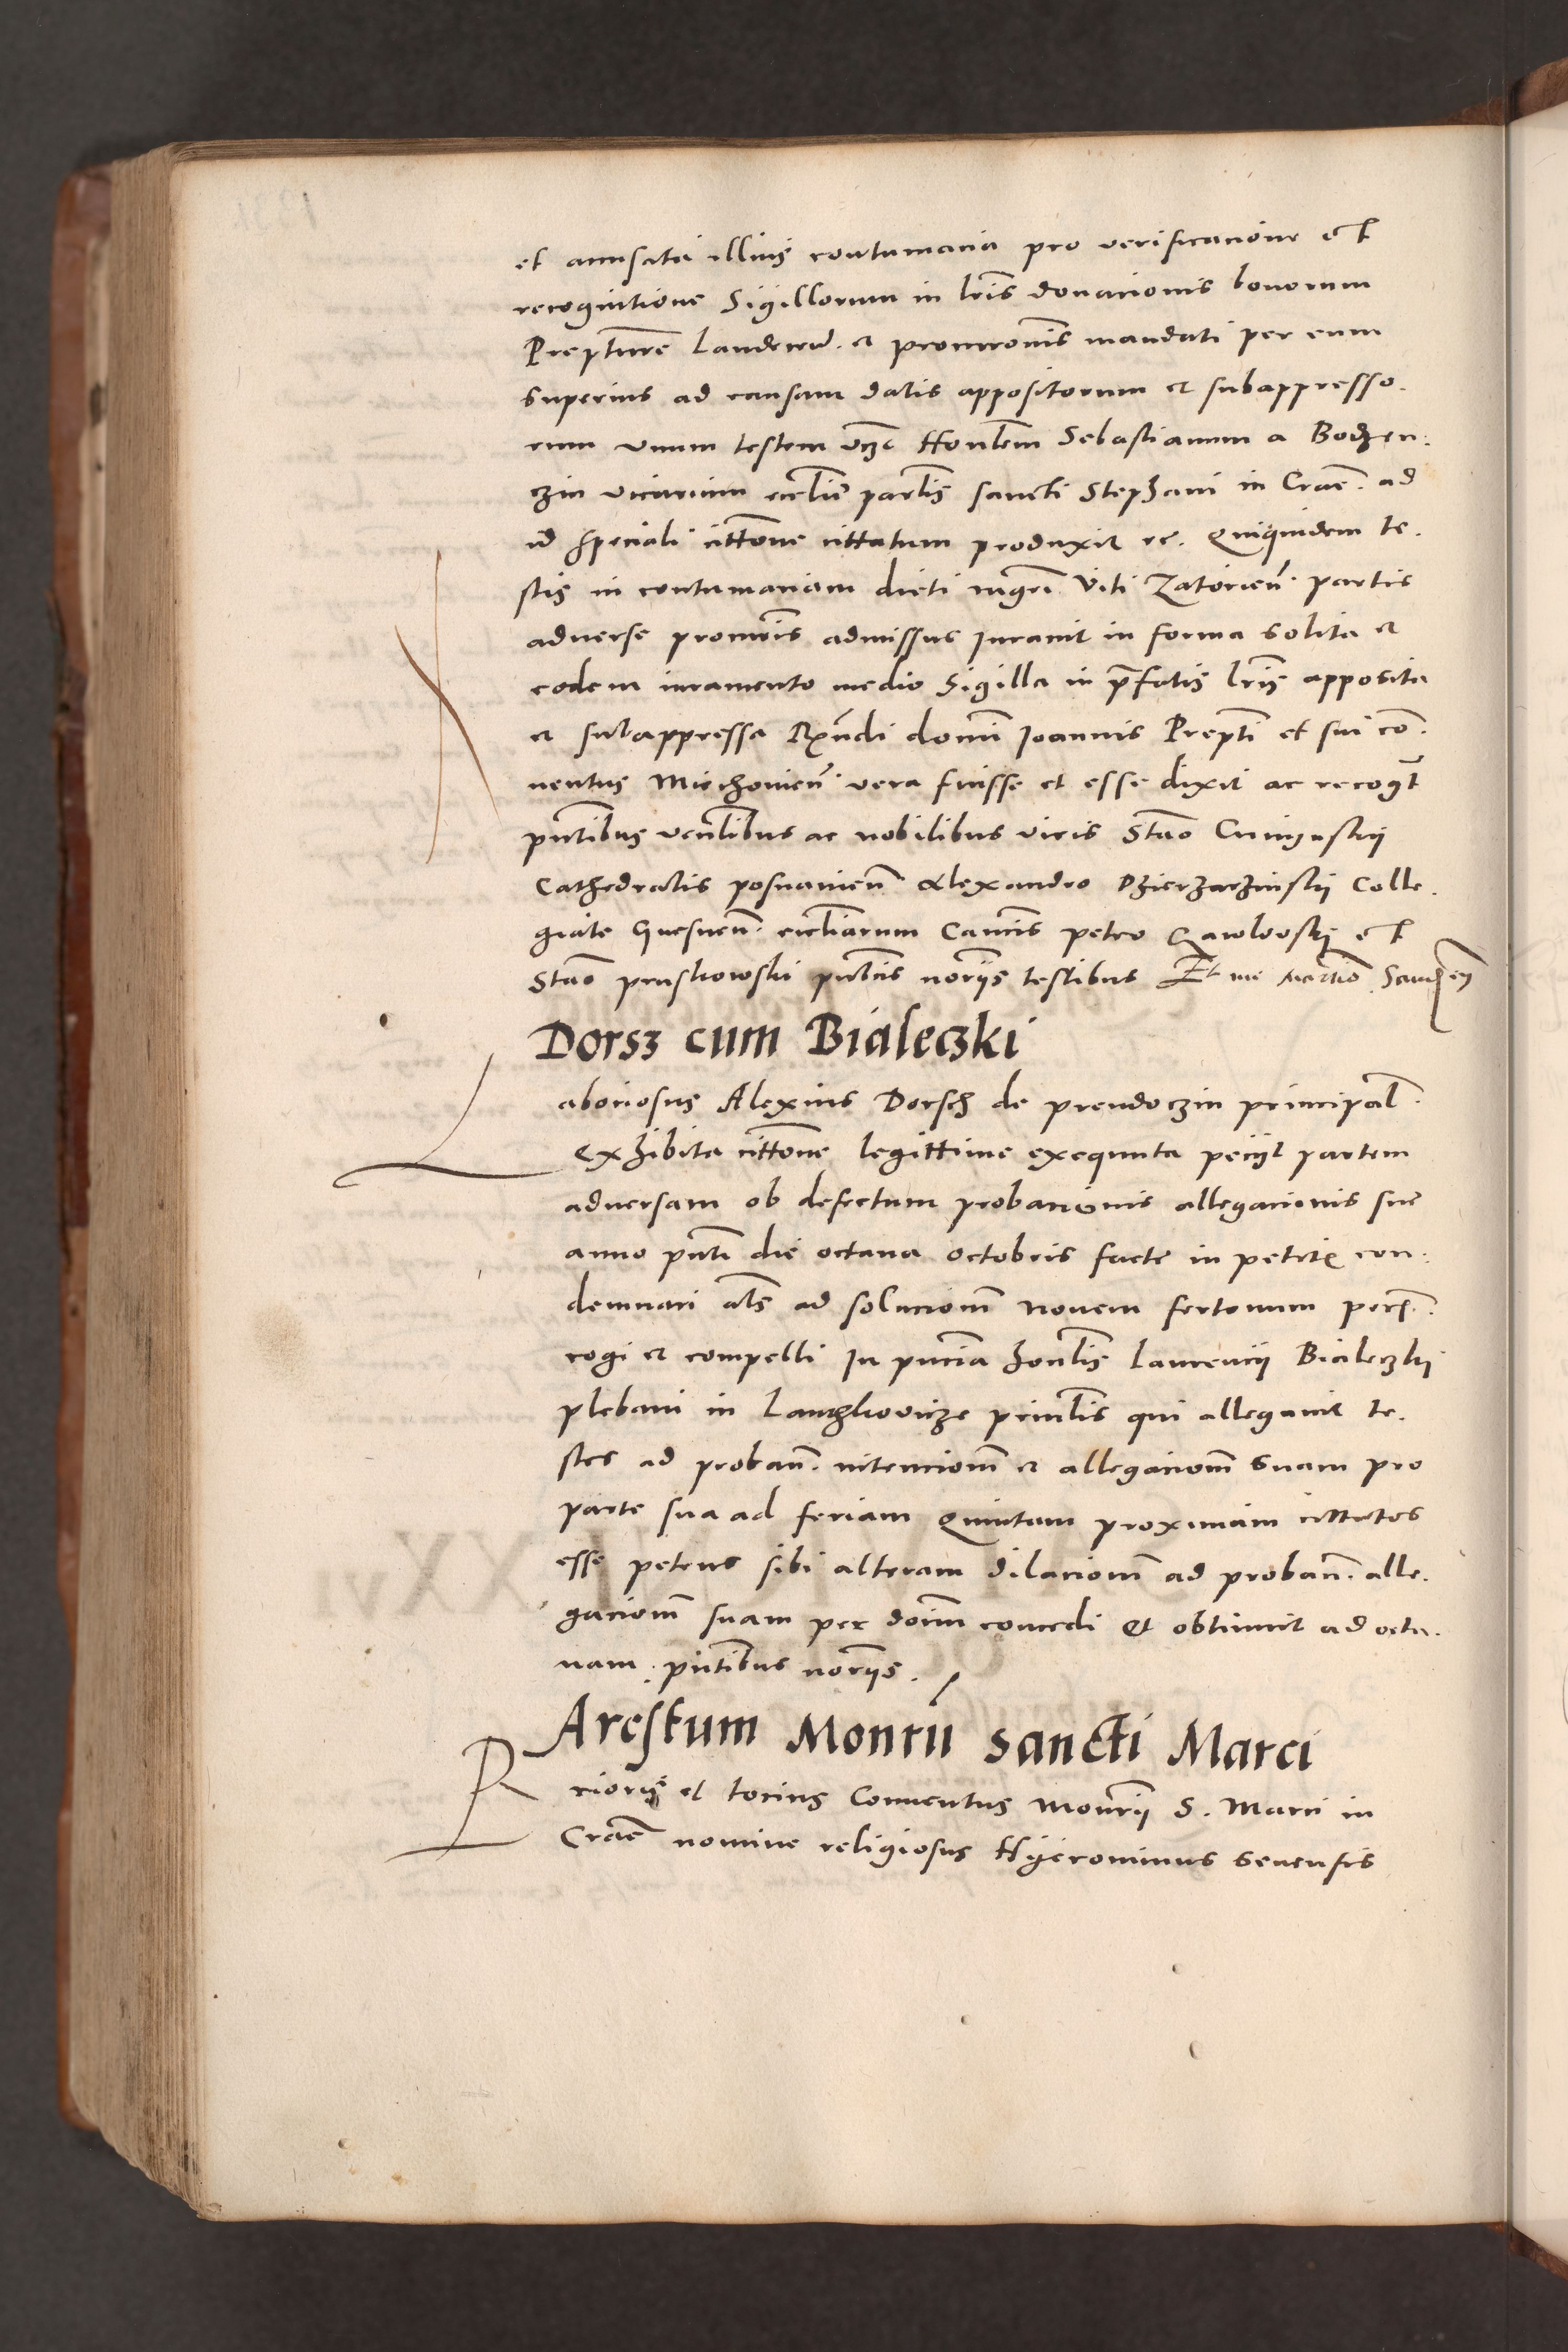 et accusata illius contumacia pro verificacione et
recognitione Sigillorum in lris donacionis bonorum
Prepture et procuronis mandati per eum
superius ad causam datis appositorum et subappresso.
rum vnum testem vtzc Honlem Sebastianum a Bodzen.
czin vicarium ecclie parlis sancti Stephani in Crac. ad
id speciali cittone cittatum produxit rc. Quiquidem te.
stis in contumaciam dicti mgri Viti Zatorien. partis
adverse procuris admissus Iurauit in forma solita et
eodem iuramento medio Sigilla in prefatis lris apposita
et subappressa Rxndi domi Ioannis Prepti et sui con.
uentus Miechouien. vera fuisse et esse dixit ac recogt
pntibus venlibus ac nobilibus viris Stao
Cathedralis posnanien. Alexandro Dzierzaczinskij Colle.
giate Gnesnen. eccliarum Cancis petro Gawlovskij et
Stao pruskowski publcis noriis testibus Et me
Dorsz cum Bialeczki
Laboriosus Alexius Dorsch de prendoczin principal.
exhibita cittone legittime exequuta peciit partem
adversam ob defectum probacionis allegacionis sue
anno pnti die octaua octobris facte in petitis con.
demnari als ad solucionem nouem fertonum
cogi et compelli In pncia honlis Laurencij Bialeczkij
plebani in princlis qui allegauit te.
stes ad proban. intencionem et allegacionem suam pro
parte sua ad feriam Quintam proximam cittatos
esse petens sibi alteram dilacionem ad proban. alle.
gacionem suam per dnm concedi et obtinuit ad octa.
uam. pntibus noriis.
Arestum Monrii sancti Marci
Prioris et tocius Conuentus Monrii S. Marci in
Crac nomine religiosus Hijeronimus senensis